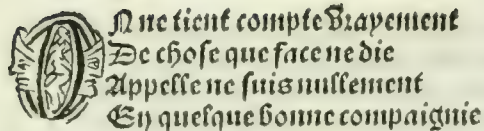 ON ne tient compte vrayement
De chose que face ne die
Appelle ne suis nullement
En quelque bonne compaignie